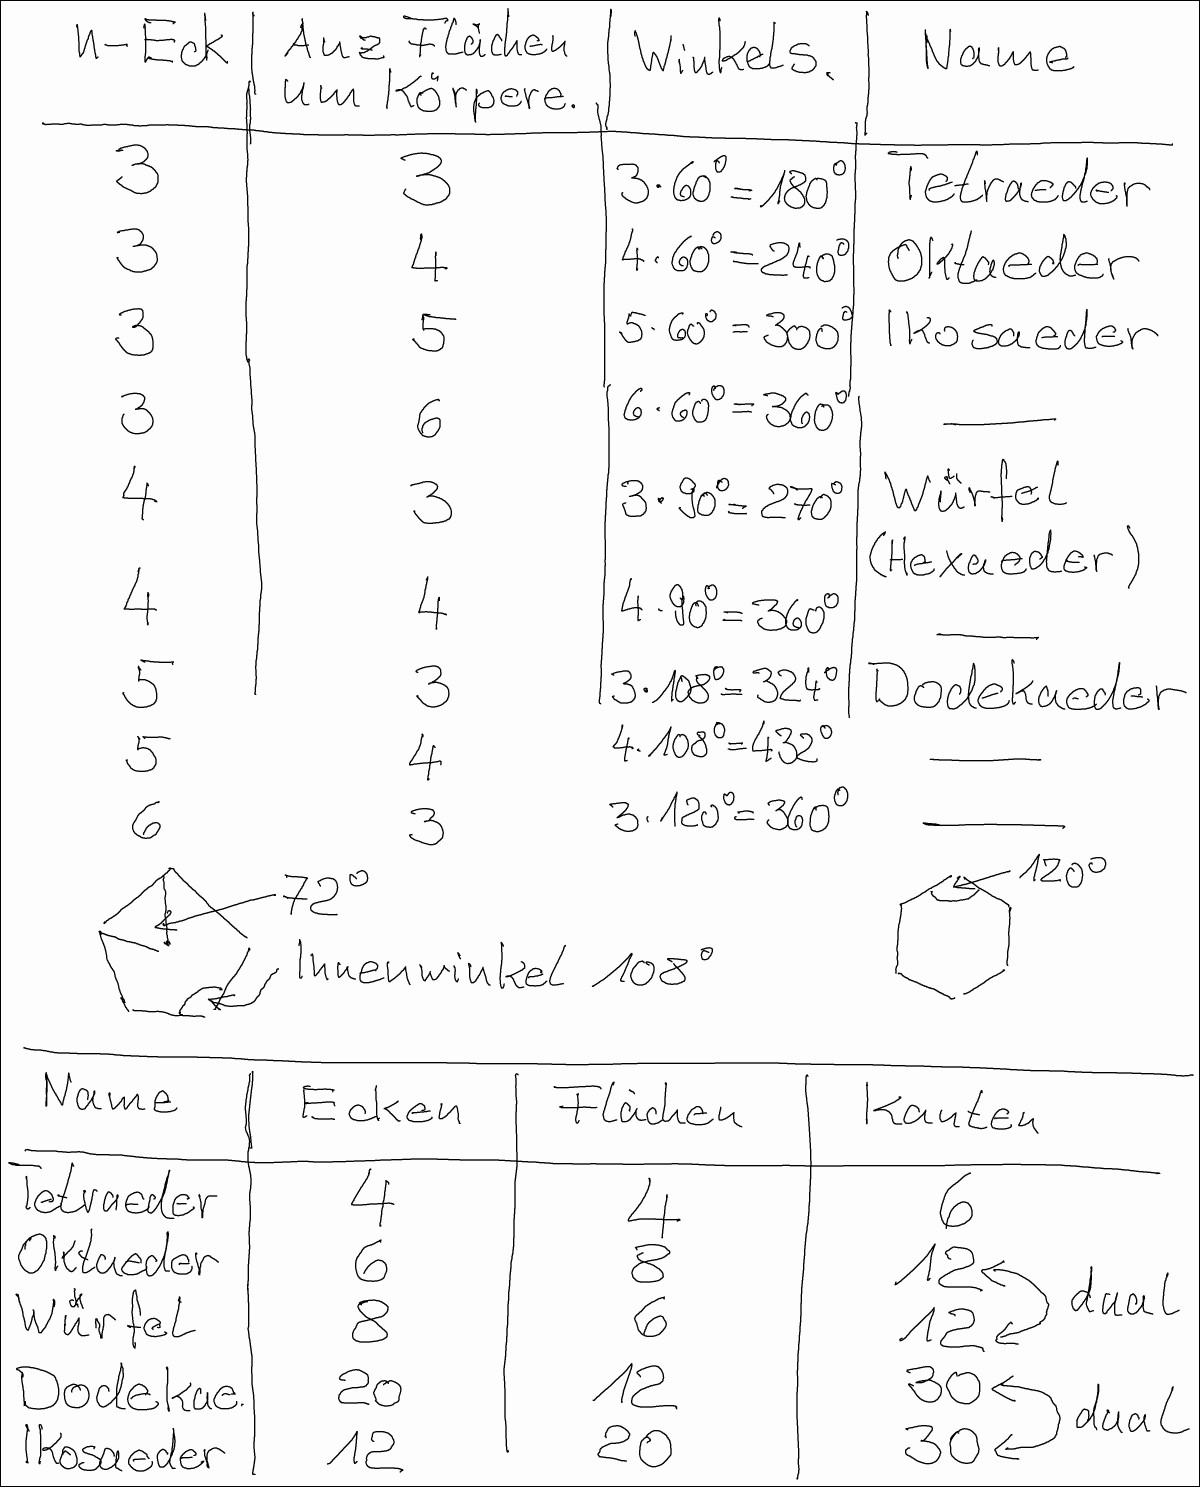 n-Eck Anz Flächen Winkels. Name
um Körpere.
3 3 3·60°=180° Tetraeder
3 4 4·60°=240° Oktaeder
3 5 5·60°=300° Ikosaeder
3 6 6·60°=360° —
4 3 3·90°=270° Würfel
(Hexaeder)
4 4 4·90°=360° —
5 3 3·108°=324° Dodekaeder
5 4 4·108°=432° —
6 3 3·120°=360° —
72° 120°
Innenwinkel 108°
Name Ecken Flächen Kanten
Tetraeder 4 4 6
Oktaeder 6 8 12
dual
Würfel 8 6 12
Dodekae. 20 12 30
dual
Ikosaeder 12 20 30